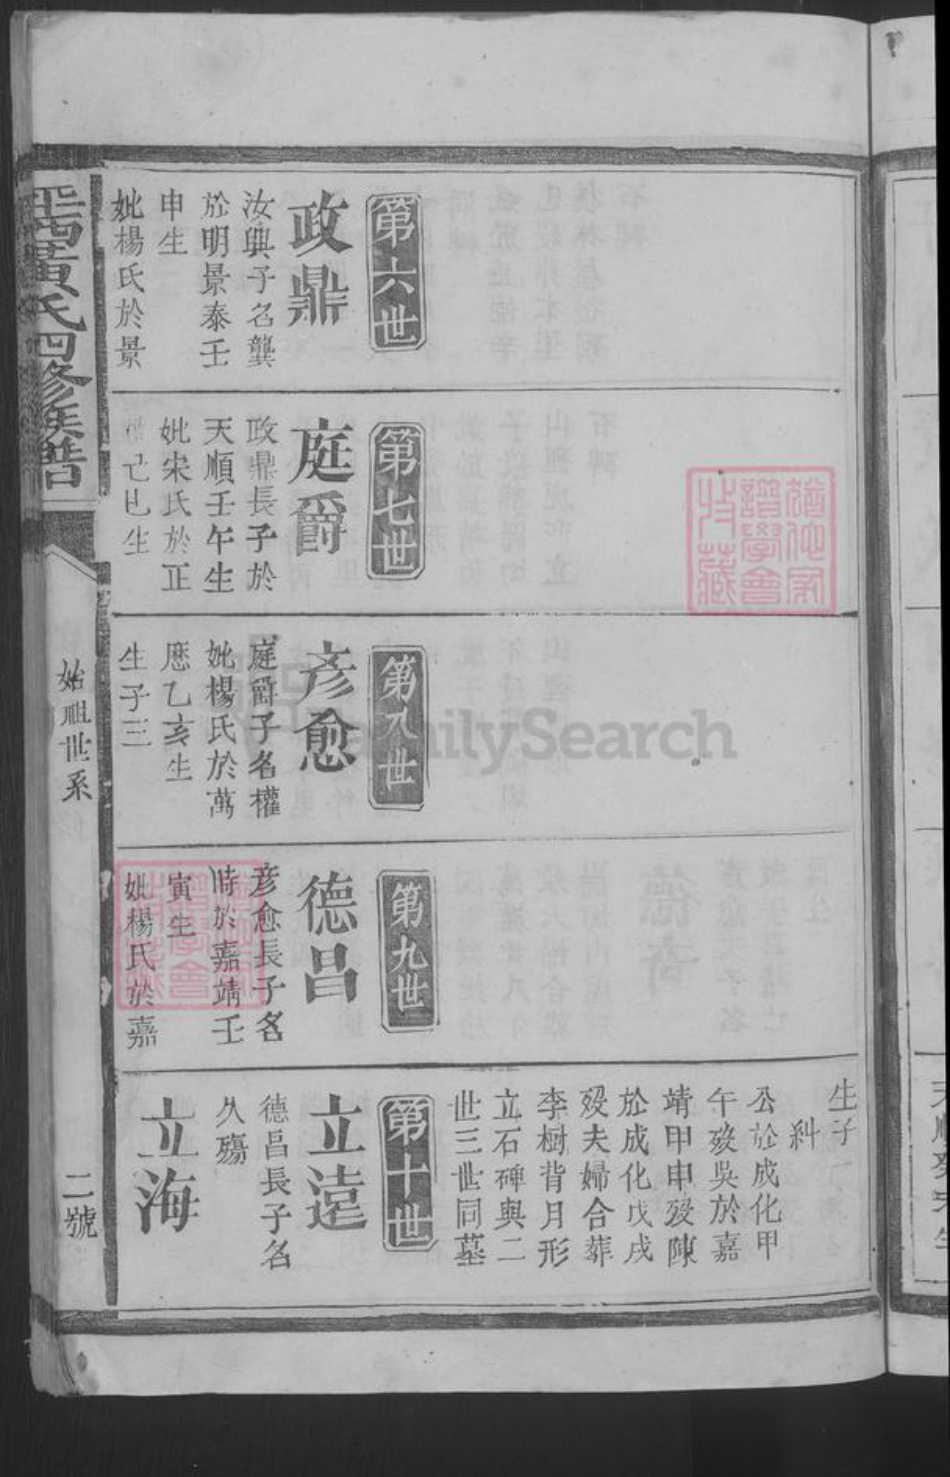 生子
糾
公於成化甲
午歿吳於嘉
靖甲申歿陳
於成化戊戌
歿夫婦合葬
李樹背月形
立石碑與二
世三世同墓
第六世
政鼎
汝興子名龔
於明景泰壬
申生
妣楊氏於景
第七世
庭爵
政鼎長子於
天順壬午生
妣宋氏於正
德己巳生
第八世
彥愈
庭爵子名權
妣楊氏於萬
歷乙亥生
生子三
第九世
德昌
彥愈長子名
時於嘉靖壬
寅生
妣楊氏於嘉
第十世
立遠
德昌長子名
久殤
立海
黃氏四修族譜
始祖世系
二號
譜學會
收藏
FamilySearch